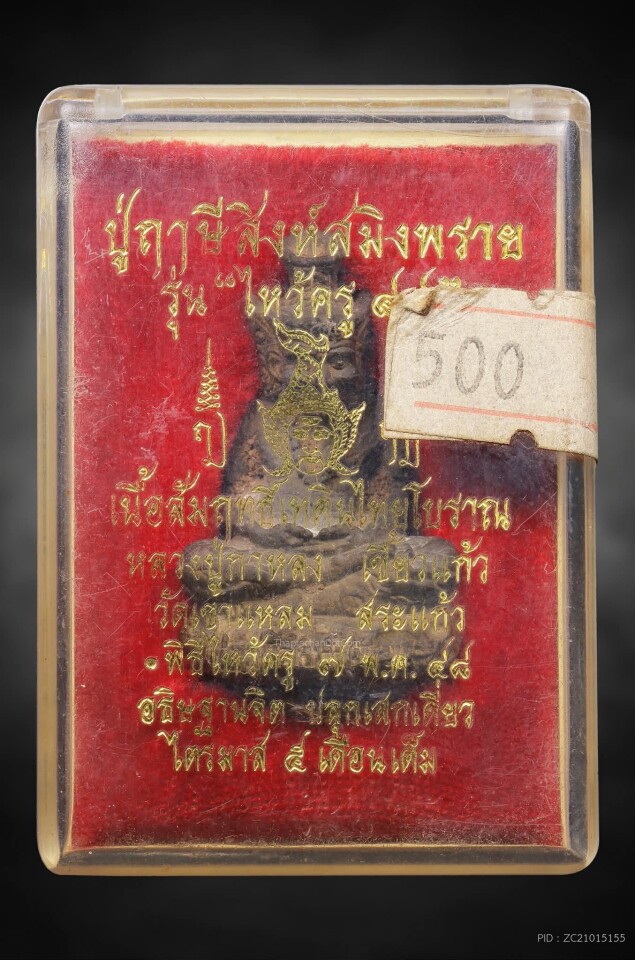 ปู่ฤๅษีสิงห์สมิงพราย
รุ่น "ไหว้ครู
500
เนื้อสัมฤทธิ์เทหินไทยโบราณ
หลวงปู่กาหลง เขี้ยวแก้ว
วัดเขาแหลม สระแก้ว
พิธีไหว้ครู ๗ พ.ค. ๔๘
อธิษฐานจิต ปลุกเสกเดี่ยว
ไตรมาส ๕ เดือนเต็ม
PID : ZC21015155